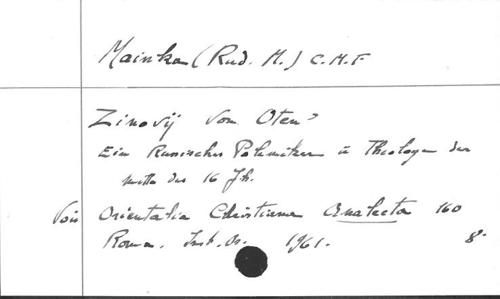 Mainka (Rud. M.) C.M.F
Zinovij von Oten'
Ein Russischer Polemiker u Theologe der
mitte des 16 Jh.
Voir Orientalia Christiana Analecta 160
Roma. Inst. Or. 1961. 8°